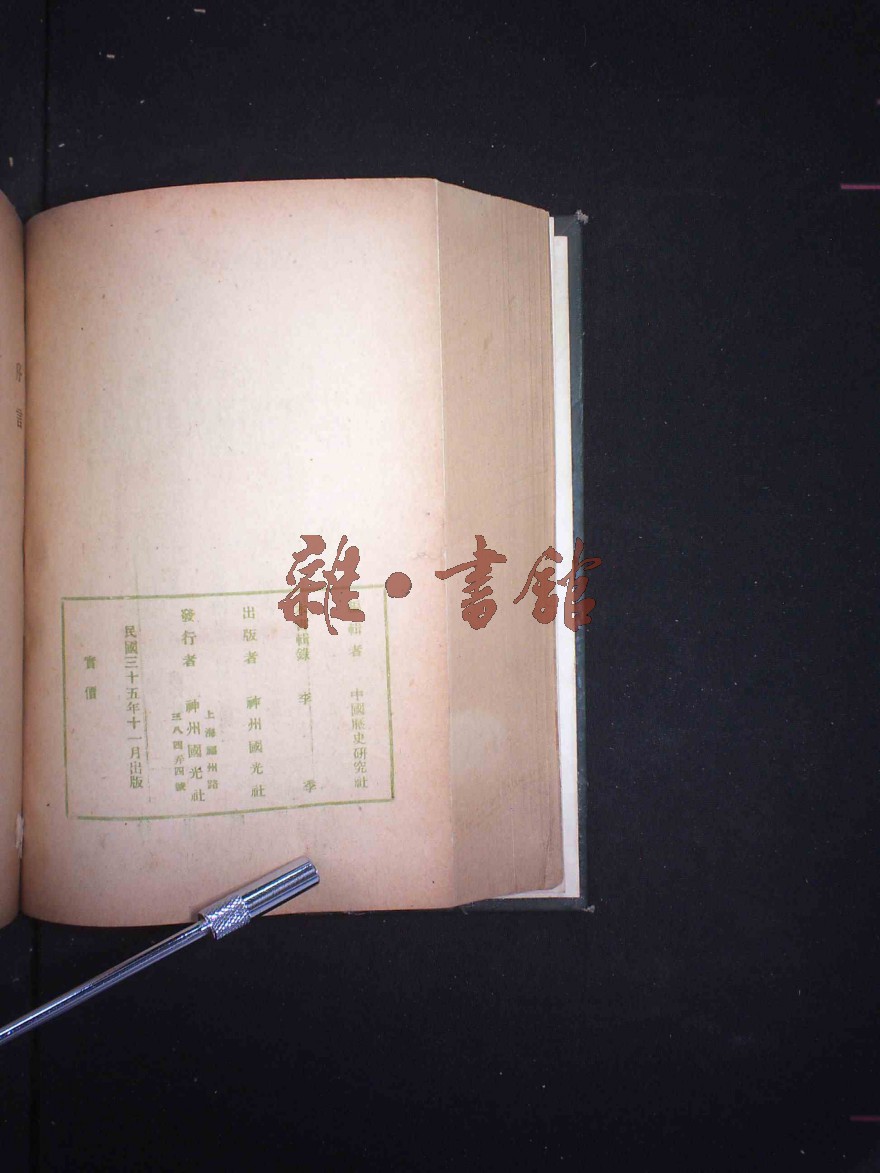 雜·書館
輯者 中國歷史研究社
輯錄 李季
出版者 神州國光社
發行者 神州國光社
上海福州路
三八四弄四號
民國三十五年十一月出版
實價